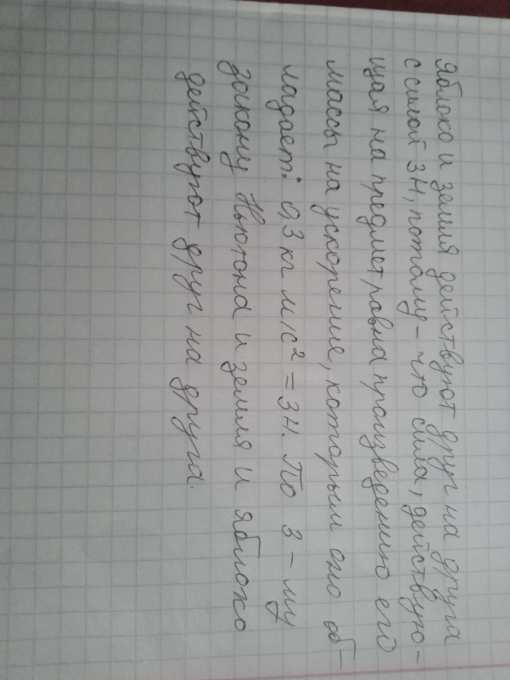 Яблоко и земля действуют друг на друга
с силой 3Н, потому-что сила, действую-
щая на предмет равна произведению его
массы на ускорение, которым оно об-
ладает: 0,3 кг м/с² = 3Н. По 3-му
закону Ньютона и земля и яблоко
действуют друг на друга.